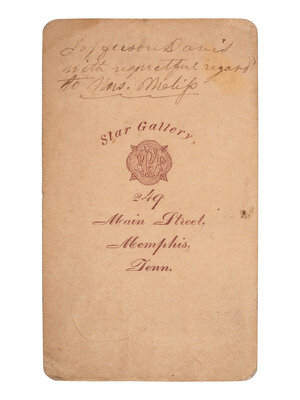 Jefferson Davis
with respectful regard
to Mrs. Phelips
Star Gallery,
249
Main Street,
Memphis,
Tenn.